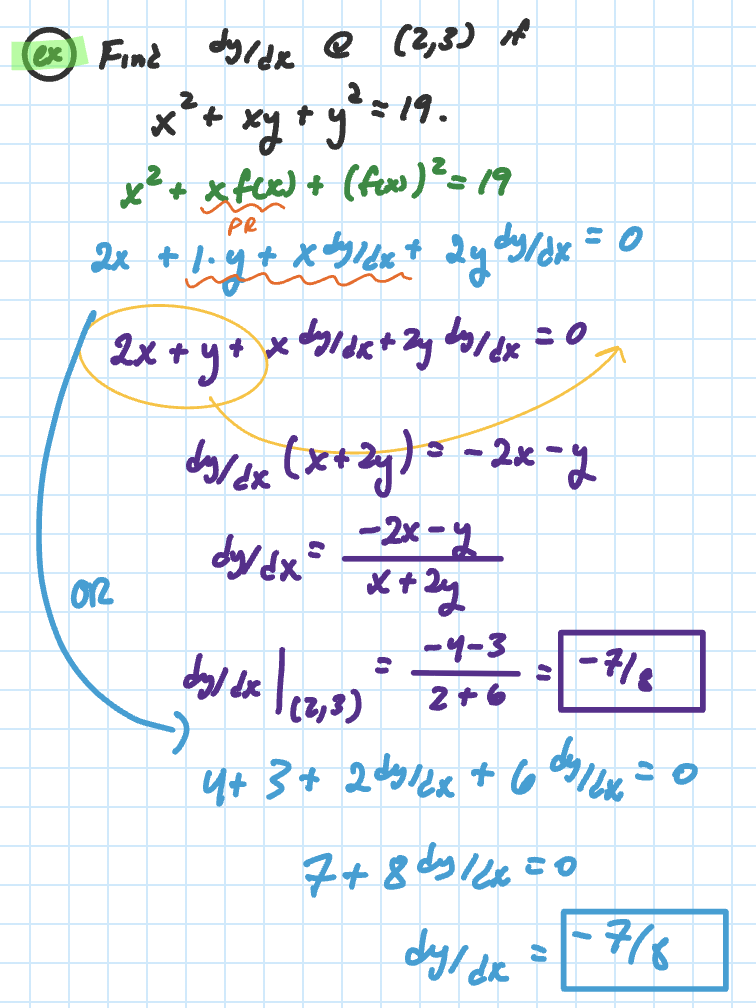 ex Find dy/dx @ (2,3) if
x² + xy + y² = 19.
x² + x f(x) + (f(x))² = 19
PR
2x + 1·y + x dy/dx + 2y dy/dx = 0
2x + y + x dy/dx + 2y dy/dx = 0
dy/dx (x + 2y) = -2x - y
dy/dx = (-2x - y)/(x + 2y)
OR
dy/dx |(2,3) = (-4-3)/(2+6) = -7/8
4 + 3 + 2 dy/dx + 6 dy/dx = 0
7 + 8 dy/dx = 0
dy/dx = -7/8